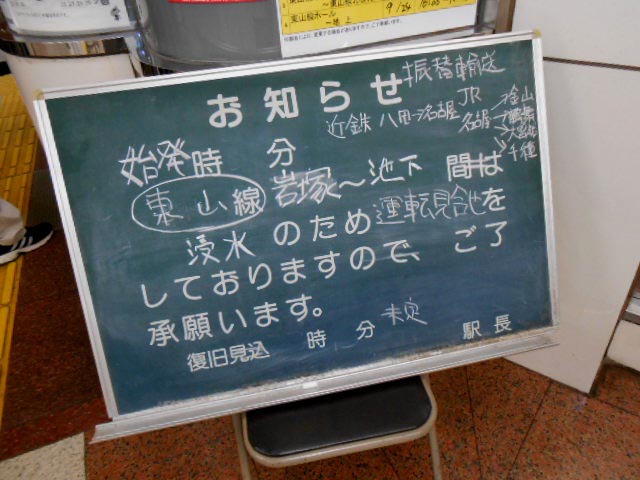 東山線ホーム
~地上
9/24
お知らせ
振替輸送
近鉄 八田~名古屋
JR
名古屋
金山
鶴舞
大曽根
千種
始発時 分
東山線 岩塚~池下 間は
浸水のため運転見合せを
しておりますので、ご了
承願います。
復旧見込 時 分 未定
駅長